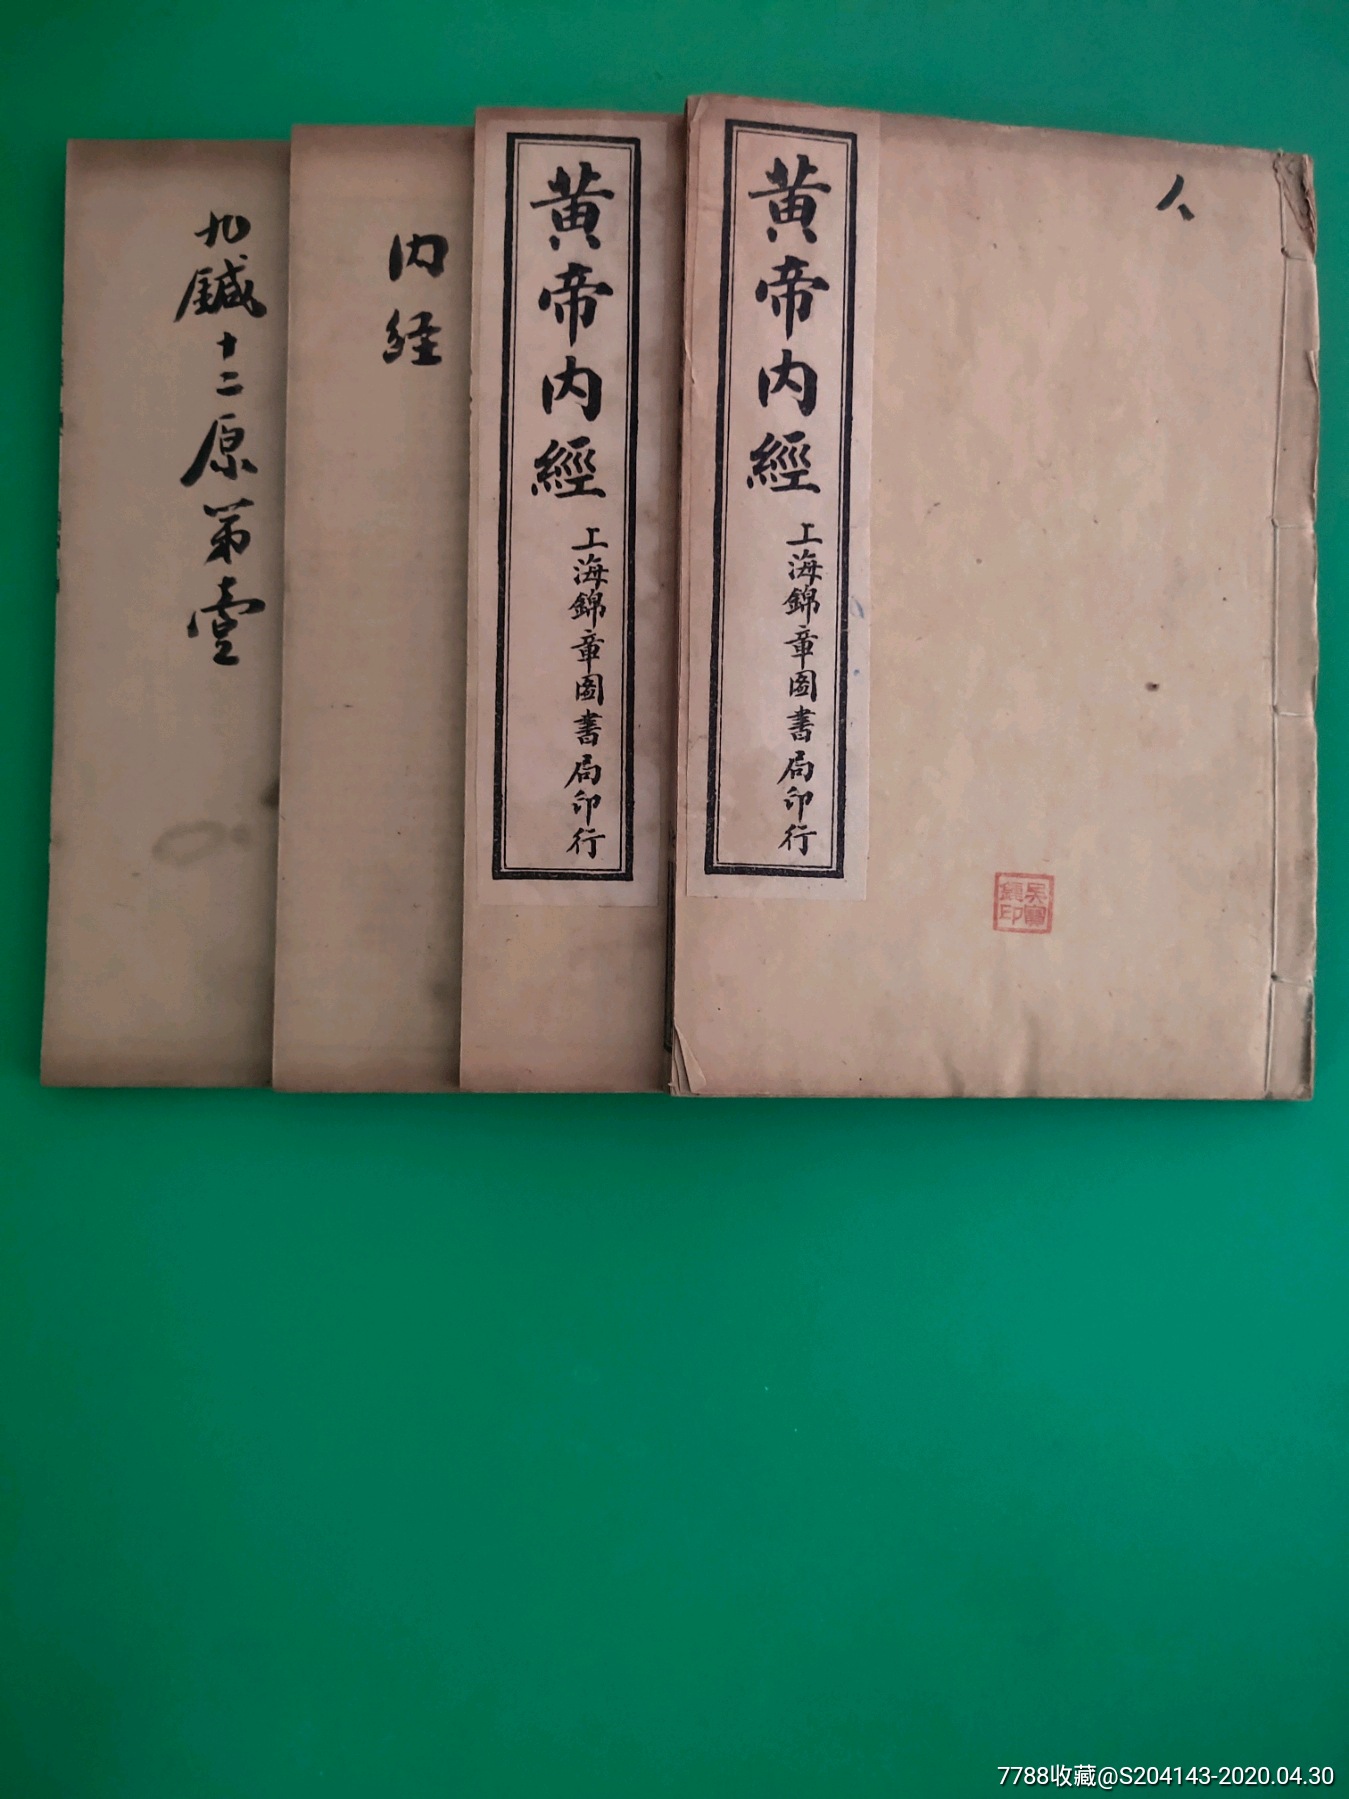 九鍼十二原第壹
内
经
黄帝内經
上海錦章圖書局印行
黄帝内經
上海錦章圖書局印行
人
吳寶
印
7788收藏@S204143-2020.04.30